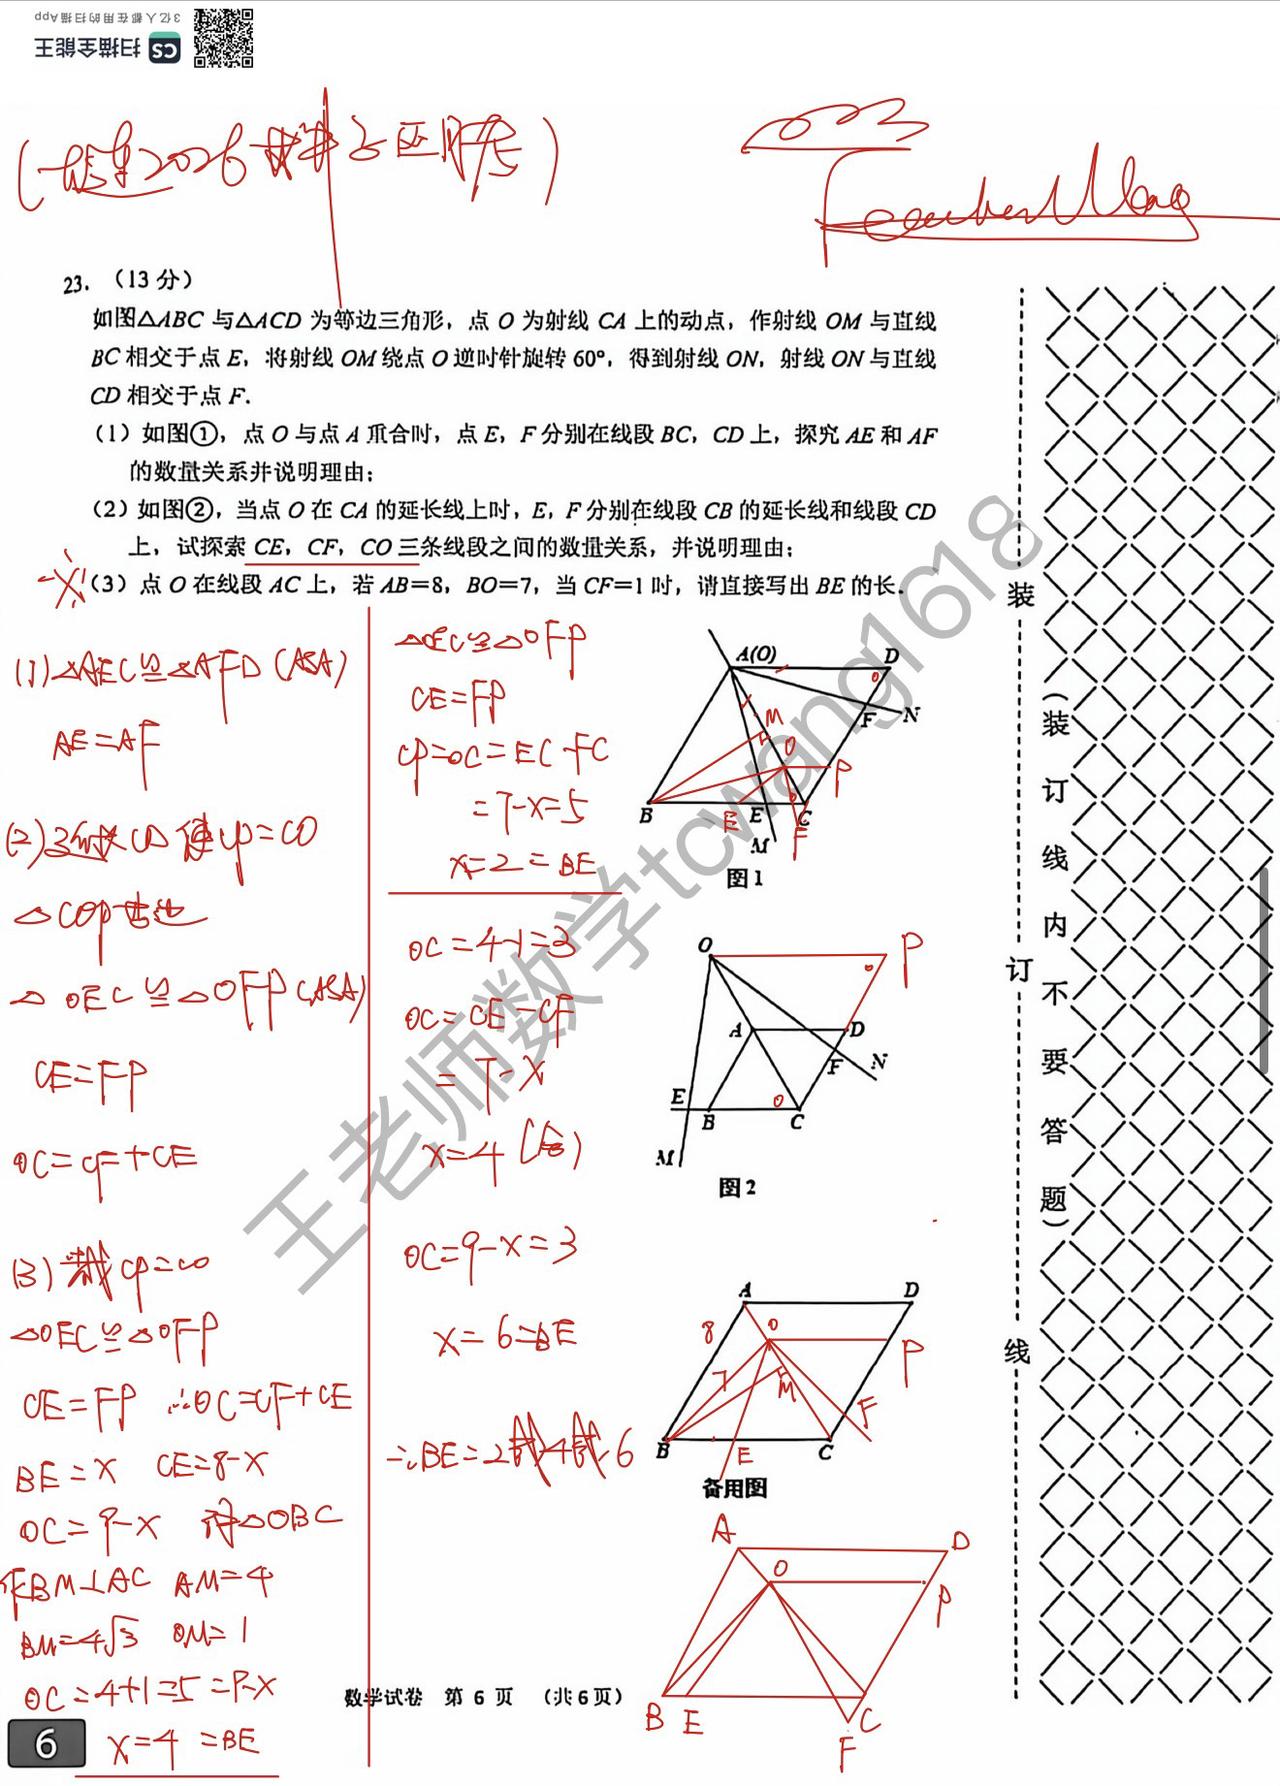 3亿人都在用的扫描App
扫描全能王
CS
2026
Teacher Wang
23. （13 分）
如图△ABC 与△ACD 为等边三角形，点 O 为射线 CA 上的动点，作射线 OM 与直线
BC 相交于点 E，将射线 OM 绕点 O 逆时针旋转 60°，得到射线 ON，射线 ON 与直线
CD 相交于点 F.
（1）如图①，点 O 与点 A 重合时，点 E，F 分别在线段 BC，CD 上，探究 AE 和 AF
的数量关系并说明理由；
（2）如图②，当点 O 在 CA 的延长线上时，E，F 分别在线段 CB 的延长线和线段 CD
上，试探索 CE，CF，CO 三条线段之间的数量关系，并说明理由；
（3）点 O 在线段 AC 上，若 AB=8，BO=7，当 CF=1 时，请直接写出 BE 的长.
(1) △AEC≌△AFD (ASA)
AE=AF
CP=CO
△COP
△OEC≌△OFP (ASA)
CE=FP
OC=CF+CE
(3) 截CP=CO
△OEC≌△OFP
CE=FP ∴OC=CF+CE
BE=x CE=8-x
OC=9-x △OBC
作BM⊥AC AM=4
BM=4√3 OM=1
OC=4+1=5=9-x
x=4 =BE
△OEC≌△OFP
CE=FP
CP=OC=EC-FC
=7-x=5
x=2=BE
OC=4-1=3
OC=CE-CF
=7-x
x=4
OC=9-x=3
x=6=BE
∴BE=2或4或6
A(O)
D
M
F
N
O
P
B
E
E
C
M
F
图1
O
P
A
D
F
N
E
B
C
M
图2
A
D
8
O
P
7
M
F
B
E
C
备用图
A
D
O
P
B
E
C
F
装
订
线
（装订线内不要答题）
数学试卷 第 6 页 （共 6 页）
6
王老师数学tcwang1618